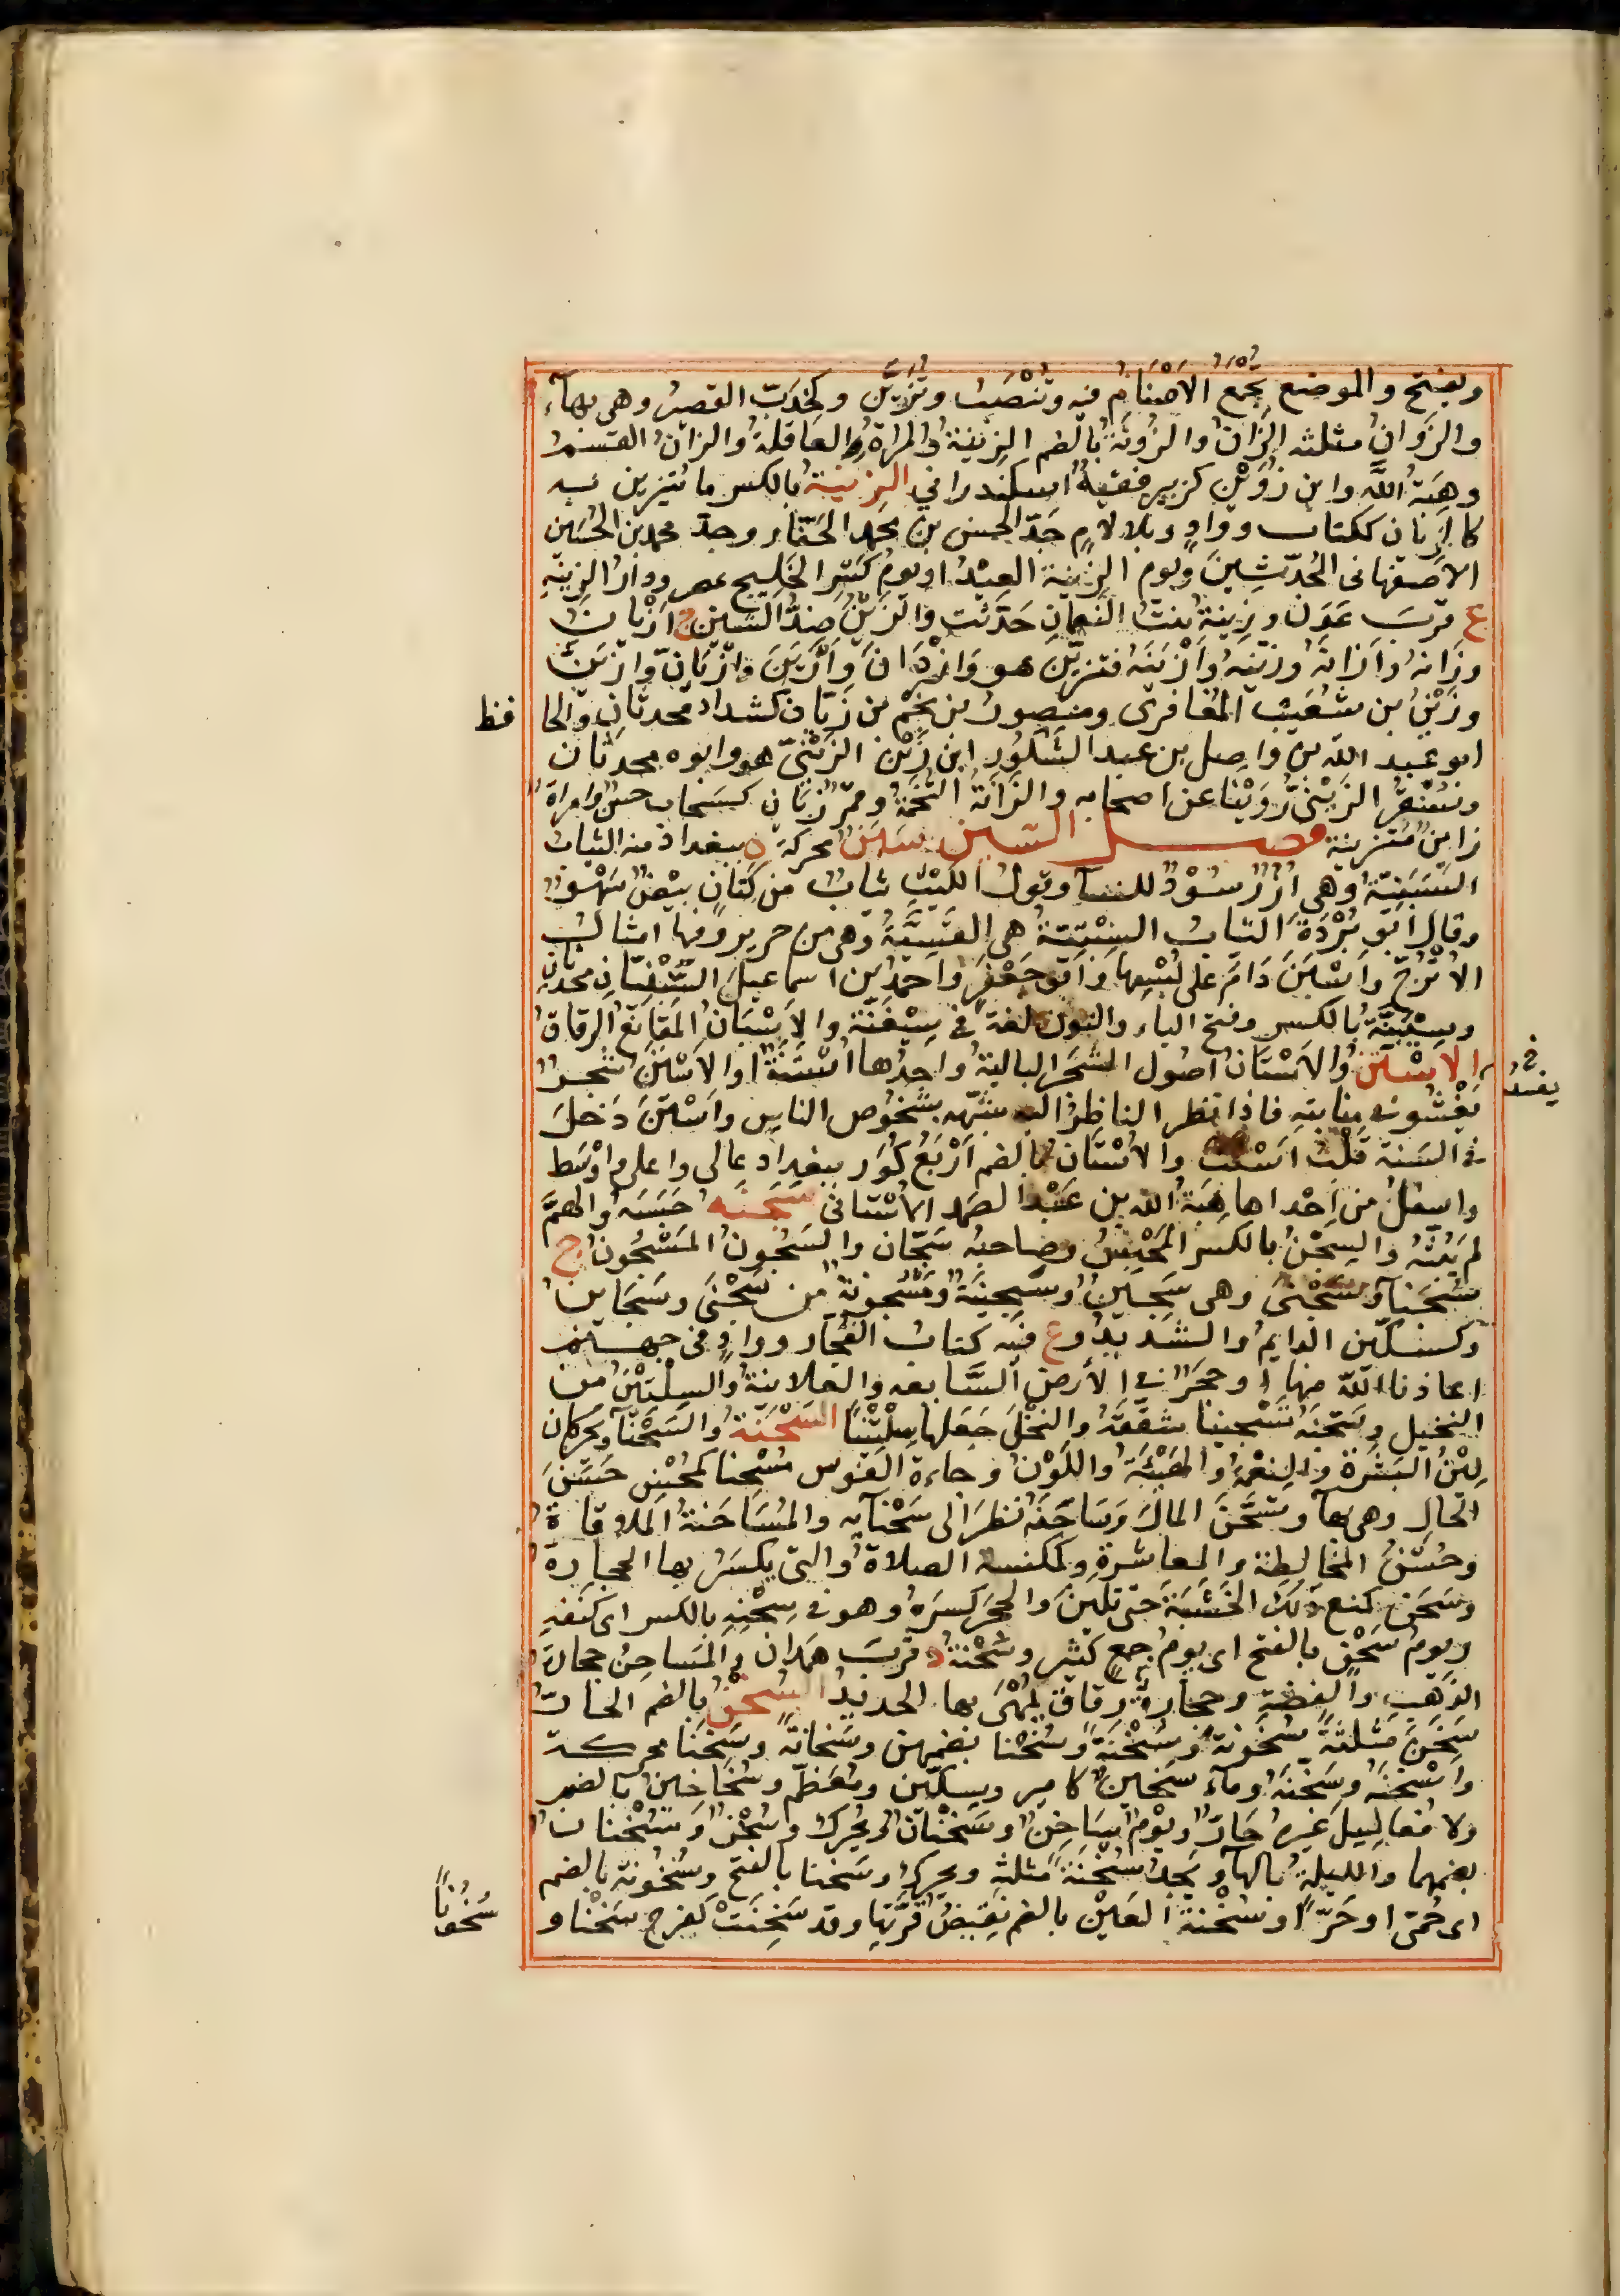 وبفتح والموضع تُجمع الأصْنام فيه وتُنْصَبُ وتُزَيَّنُ وكخِدَبٍّ القصيرُ وهى بهاء
والزُوانُ مثلثه الزَانُ والزُونَةُ بالضم الزِينةُ والمرأةُ العاقلةُ والزانُ القسمُ
وهِبَةُ الله وابن زُوَيْنٍ كزبير فقيهٌ اسكندرانى الزينةُ بالكسر ما يُتزين به
كالزيان ككتاب ووادٍ وبلا لامٍ جَدّ الحسن بن محمد الحَفّار وجدّ محمد بن الحُسَين
الأصفهانى المُحدّثينَ ويوم الزينة العيدُ او يومُ كَسْرِ الخَليج بمصر ودارُ الزينةِ
ع قربَ عَدَن وزينةُ بنتُ النُعمانِ حَدَّثت والزَيْنُ ضِدُّ الشَين ج ازْيانٌ
وزَانه وأزَانَهُ وزيّنه وأزْيَنَهُ فتزيّنَ هو وَازْدَانَ وَازَّيَّنَ وازْيَانّ وازْيَنَّ
وزَيْنُ بن شُعَيب المُعَافرى ومنصورُ بن نَجْم بن زَيّان كشداد محدثان والحا فظ
ابو عبد الله بن واصل بن عبد الشَكُور ابن زَيْن الزَيْنىّ هو وابوه محدثان
وسُنْقُرُ الزَيْنِىُّ رَوَيْنا عن اصحابه والزَانَةُ التُخَمَةُ وقمرٌ زَيَان كسَحاب حسنٌ وامراةٌ
زاينٌ متزينة فصل السين سَبَنٌ محركة ة ببغداذ منه الثيابُ
السَبَنِيّةُ وهى أُزُرٌ سُوْدٌ للنساء وقول الليْثِ ثيابٌ من كتّانٍ بيضٌ سَهْوٌ
وقال ابو بُرْدَةَ الثيابُ السَبَنيّةُ هى القَسِيَّةُ وهى من حرير وفيها امثالُ
الأتْرُجّ واَسْبَنَ دَامَ على لُبْسِها وَأبو جعْفَر واحمد بن اسماعيلَ السَبَنيّانِ محدثان
وسِيْبَنَّةُ بالكسر وفتح الباء والنون لغة فى سِيْفَنّة والأَسْبَانُ المَقانِعُ الرقاقُ
الأَسْتَنُ والأَسْتَان اصُول الشَجَر البالية واحدُها اَسْتَنَةٌ او الأسْتَنُ شجرٌ
يَفْشُو فى منابتهِ فاذا نظر الناظِرُ اليه شبّهه بشُخوُص الناس واَسْتَنَ دَخَلَ
فى السَنة قَلْب اَسْنَتَ والأُسْتَان بالضم اَرْبَعُ كُوَر ببغداد عالى واعلى واوْسَط
واسفلُ من اِحْداها هِبَةُ الله بن عَبْد الصَمد الأُسْتانى سَجَنَه حَبَسَه والهَمَّ
لم يَبُثَّهُ والسِجْنُ بالكسر المَحْبِسُ وصاحبُه سَجّان والسَجُونُ المَسْجُونُ ج
سُجَناء وسَجْنَى وهى سَجينٌ وسَجِينَةٌ ومَسْجونةٌ من سَجْنَى وسَجَاينُ
وكسكّين الدايمُ والشديدُ وع فيه كتابُ الفُجّار ووادٍ فى جهنم
اعاذنا الله منها او حجرٌ فى الأرض السَّابعه والعلانيةُ والسِلْتِيْنُ من
النخيل وسَجّنَهُ تَسْجينا شقّقَهُ والنخلَ جَعَلها سِلْتِيْنًا السَحْنَةُ والسَحْناءُ ويحركان
لِيْنُ البَشَرَةِ والنعْمةُ والهَيْئةُ واللَوْنُ وجاءة الفَرَس مُسْحِنا كمُحْسِن حَسَنَ
الحالِ وهى بهاء وتسَحَّنَ المالَ وسَاحَنَهُ نظرَ الى سَحْنائِه والمُسَاحَنةُ الملاقاةُ
وحُسْنُ المُخالطة والمعاشرةِ وكمكنسه الصلاةُ والتى يكسَرُ بها الحجارةُ
وسَحَن كمنع دَلَكَ الخَشَبَةَ حَتى تَلينَ والحجرَ كسَرَهُ وهو فى سِحْنِهِ بالكسر اى كنَفِه
ويومُ سَحْنٍ بالفتح اى يومُ جمعٍ كثير وسَحْنةُ د قربَ همدان والمَساحِنُ حجارةُ
الذَهَبِ والفِضّةِ وحجارةٌ رِقاقٌ يُمْهَى بها الحديدُ السُخْنُ بالضم الحارّ
سَخنَ مثلثةً سُخُونَةً وسُخْنَةً وسُخْنا بضمهن وسَخانةً وسَخَنًا محركة
واَسْخنَهُ وسَخّنَه وماء سَخينٌ كامير وسكّين ومُعَظّم وسُخَاخينُ بالضم
ولا فُعَالِيلَ غيرهُ حَارٌّ ويَوْم سَاخِنٌ وسَخْنانٌ ويُحرك وسُخْنٌ وسُخْنانٌ
بضمهما والليلةُ بالهاء ويجدُ سخْنَةً مثلثة ويحركُ وسَخنا بالفتح وسُخُونَة بالضم
اى حُمّى او حَرًّا وسُخْنةُ العَيْنِ بالضم نَقيضُ قُرَّتِها وقد سَخِنَتْ كفرح سَخْنا و
سُخُونًا